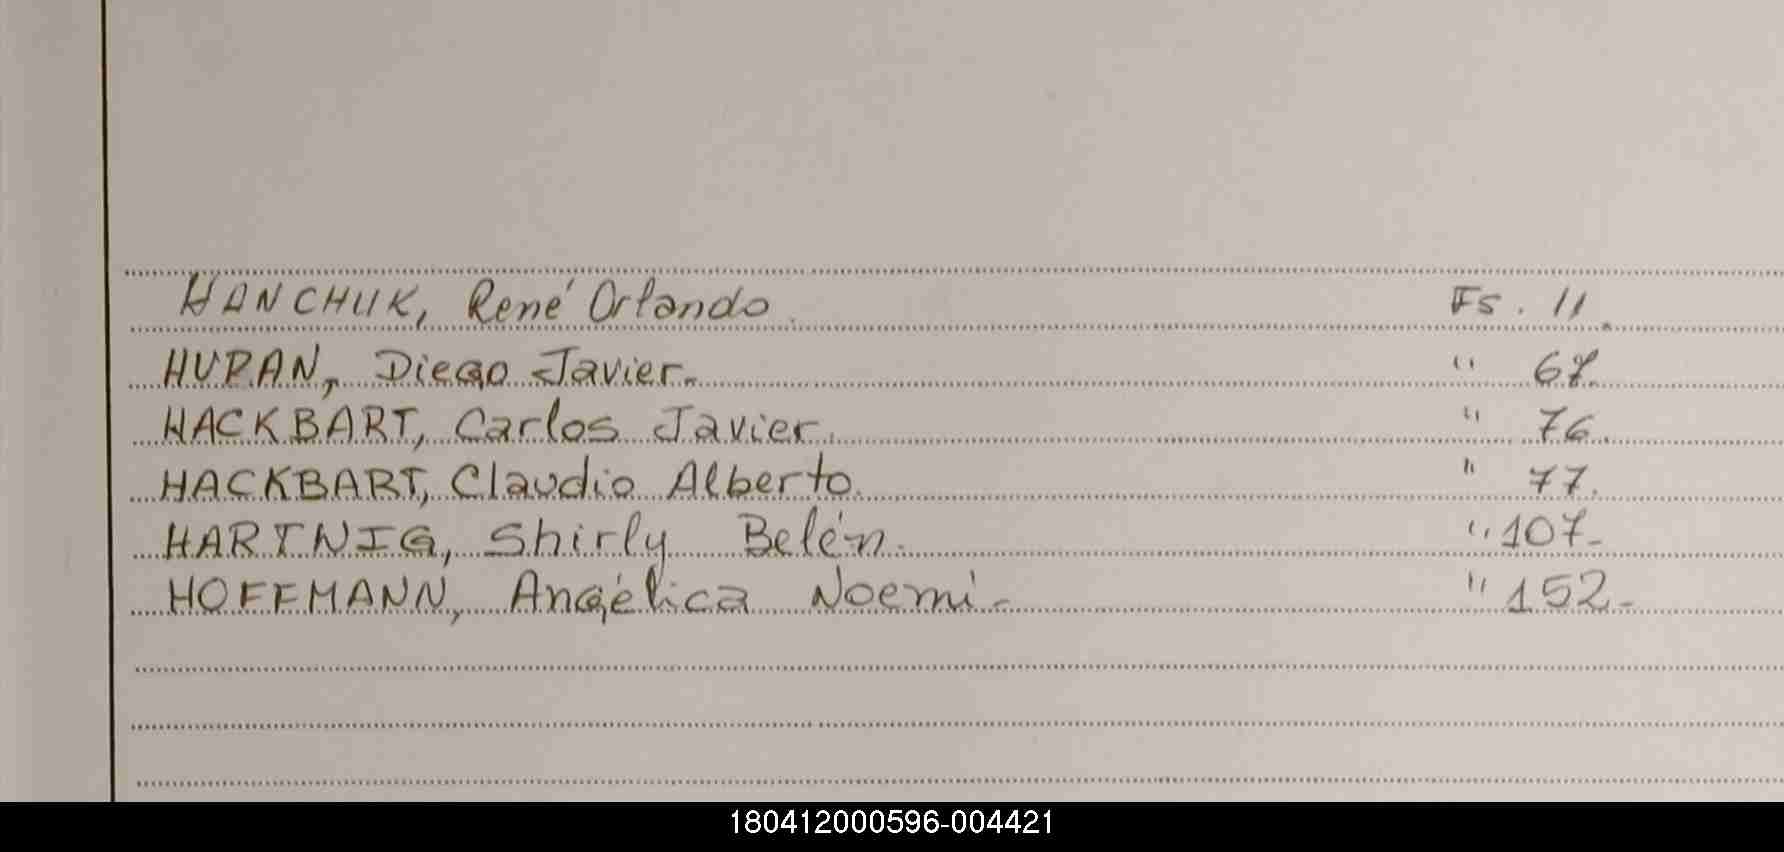 HANCHUK, René Orlando. Fs. 11.
HUPAN, Diego Javier. " 67.
HACKBART, Carlos Javier. " 76.
HACKBART, Claudio Alberto. " 77.
HARTNIG, Shirly Belén. " 107-
HOFFMANN, Angélica Noemí- " 152-
180412000596-004421